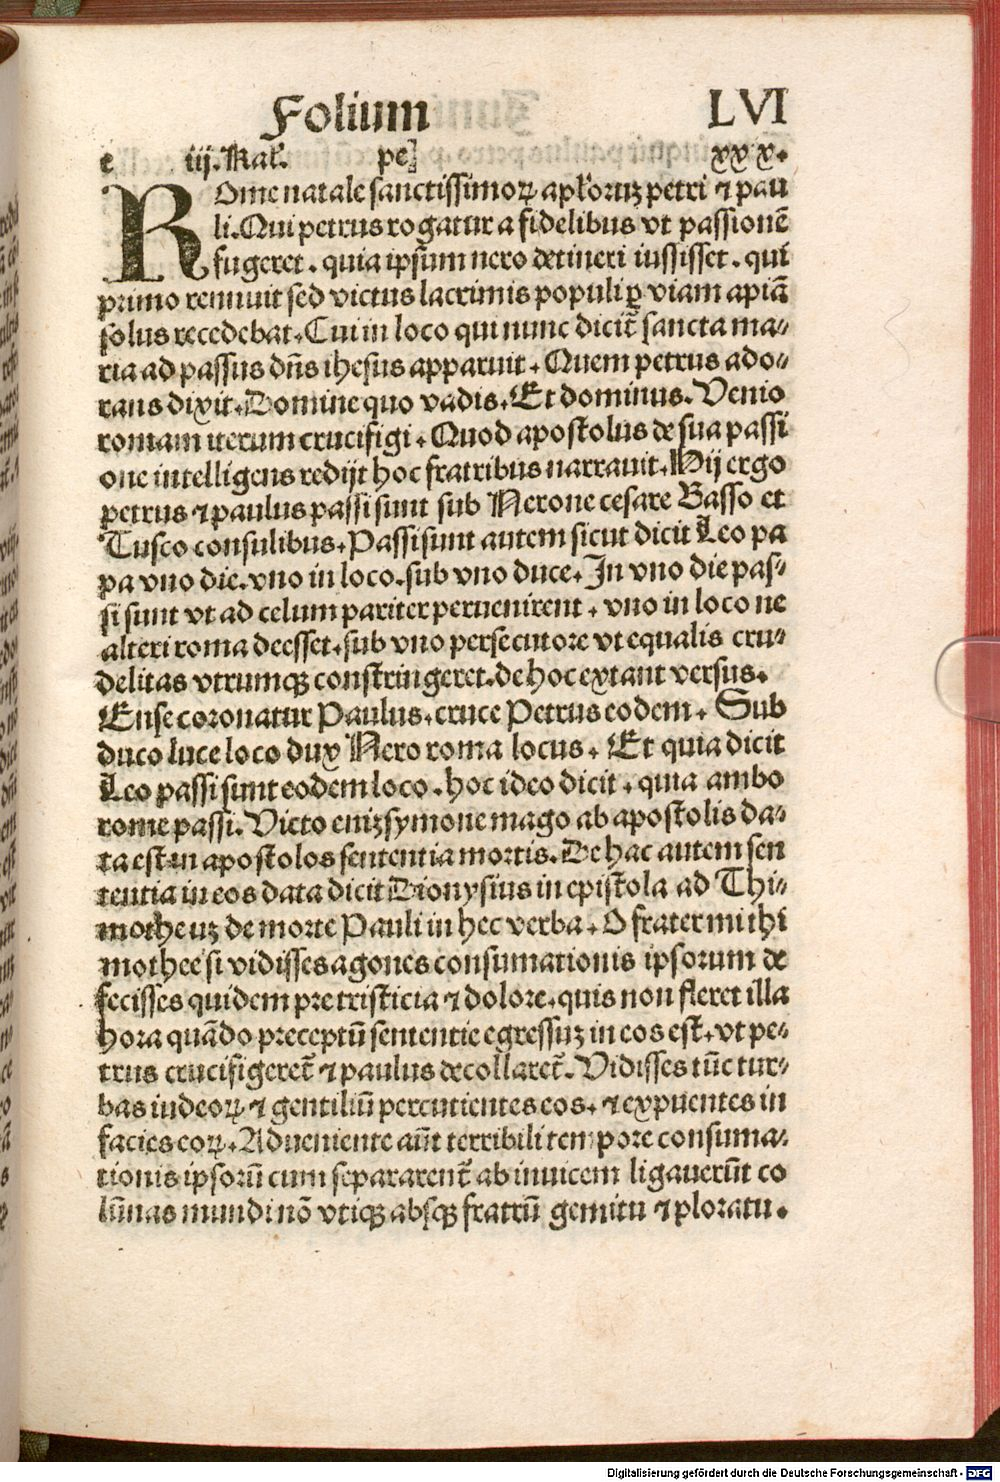 Folium LVI
e iij. Kal'. pet xxx.
ROme natale sanctissimoꝝ apl'oruꝫ petri ⁊ pau
li. Qui petrus rogatur a fidelibus vt passionē
fugeret. quia ipsum nero detineri iussisset. qui
primo rennuit sed victus lacrimis populi ꝑ viam apiā
solus recedebat. Cui in loco qui nunc dicit̄ sancta ma⸗
ria ad passus dn̄s ihesus apparuit. Quem petrus ado⸗
rans dixit. Domine quo vadis. Et dominus. Venio
romam iterum crucifigi. Quod apostolus de sua passi
one intelligens redijt hoc fratribus narrauit. Hij ergo
petrus ⁊ paulus passi sunt sub Nerone cesare Basso et
Tusco consulibus. Passi sunt autem sicut dicit Leo pa
pa vno die. vno in loco. sub vno duce. In vno die pas⸗
si sunt vt ad celum pariter peruenirent. vno in loco ne
alteri roma deesset. sub vno persecutore vt equalis cru⸗
delitas vtrumqꝫ constringeret. de hoc extant versus.
Ense coronatur Paulus. cruce Petrus eodem. Sub
duco luce loco dux Nero roma locus. Et quia dicit
Leo passi sunt eodem loco. hoc ideo dicit. quia ambo
rome passi. Victo eniꝫ symone mago ab apostolis da⸗
ta est in apostolos sententia mortis. De hac autem sen
tentia in eos data dicit Dionysius in epistola ad Thi⸗
motheuꝫ de morte Pauli in hec verba. O frater mi thi
mothee si vidisses agones consumationis ipsorum de
fecisses quidem pre tristicia ⁊ dolore. quis non fleret illa
hora quādo preceptū sententie egressuꝫ in eos est. vt pe⸗
trus crucifigeret̄ ⁊ paulus decollaret̄. Vidisses tūc tur⸗
bas iudeoꝝ ⁊ gentiliū percutientes eos. ⁊ expuentes in
facies eoꝝ. Adueniente aūt terribili tempore consuma⸗
tionis ipsorū cum separarent̄ ab inuicem ligauerūt co
lūnas mundi nō vtiqꝫ absqꝫ fratrū gemitu ⁊ ploratu.
Digitalisierung gefördert durch die Deutsche Forschungsgemeinschaft - DFG